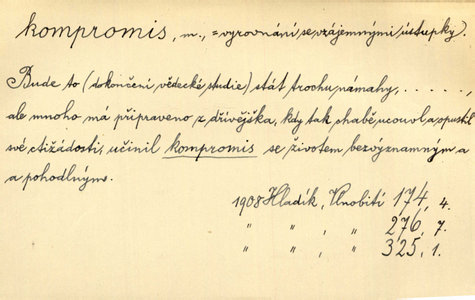 kompromis, m., = vyrovnání se vzájemnými ústupky).
Bude to (dokončení vědecké studie) stát trochu námahy, . . . . . .,
ale mnoho má připraveno z dřívějška, kdy tak chabě ucouvl a opustil
své ctižádosti, učinil kompromis se životem bezvýznamným a
a pohodlným.
1908 Hladík, Vlnobití 174, 4.
" " , " 276, 7.
" " , " 325, 1.